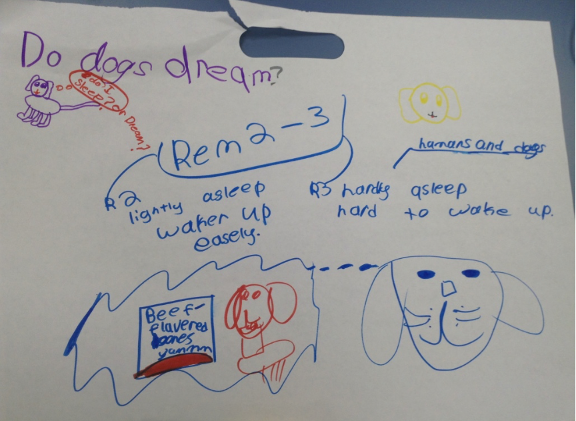 Do dogs dream?
do I
sleep? or Dream?
Rem 2-3
humans and dogs
R2
lightly asleep
waken up
easely.
R3 hardly asleep
hard to wake up.
Beef-
flavered
bones
yammm